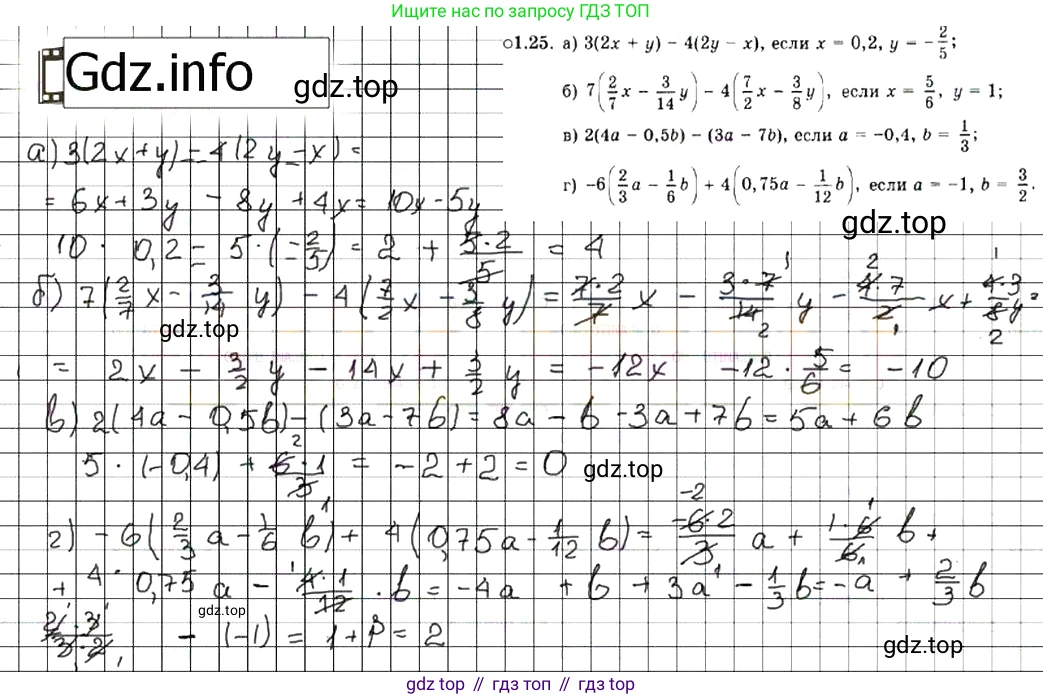 Ищите нас по запросу ГДЗ ТОП
Gdz.info
gdz.top
○1.25. а) 3(2x + y) − 4(2y − x), если x = 0,2, y = −2/5;
б) 7(2/7 x − 3/14 y) − 4(7/2 x − 3/8 y), если x = 5/6, y = 1;
в) 2(4a − 0,5b) − (3a − 7b), если a = −0,4, b = 1/3;
г) −6(2/3 a − 1/6 b) + 4(0,75a − 1/12 b), если a = −1, b = 3/2.
gdz.top
а) 3(2x+y) − 4(2y−x) =
= 6x + 3y − 8y + 4x = 10x − 5y
10 · 0,2 − 5 · (−2/5) = 2 + 5·2/5 = 4
б) 7(2/7 x − 3/14 y) − 4(7/2 x − 3/8 y) = 7·2/7 x − 3·7/14 y − 4·7/2 x + 4·3/8 y =
gdz.top
= 2x − 3/2 y − 14x + 3/2 y = −12x −12 · 5/6 = −10
в) 2(4a − 0,5b) − (3a − 7b) = 8a − b − 3a + 7b = 5a + 6b
5 · (−0,4) + 6·1/3 = −2 + 2 = 0
gdz.top
г) −6(2/3 a − 1/6 b) + 4(0,75a − 1/12 b) = −6·2/3 a + 1·6/6 b +
+ 4 · 0,75 a − 4·1/12 · b = −4a + b + 3a − 1/3 b = −a + 2/3 b
gdz.top
2·3/3·2 − (−1) = 1 + 1 = 2
gdz.top
gdz.top // гдз топ // гдз топ